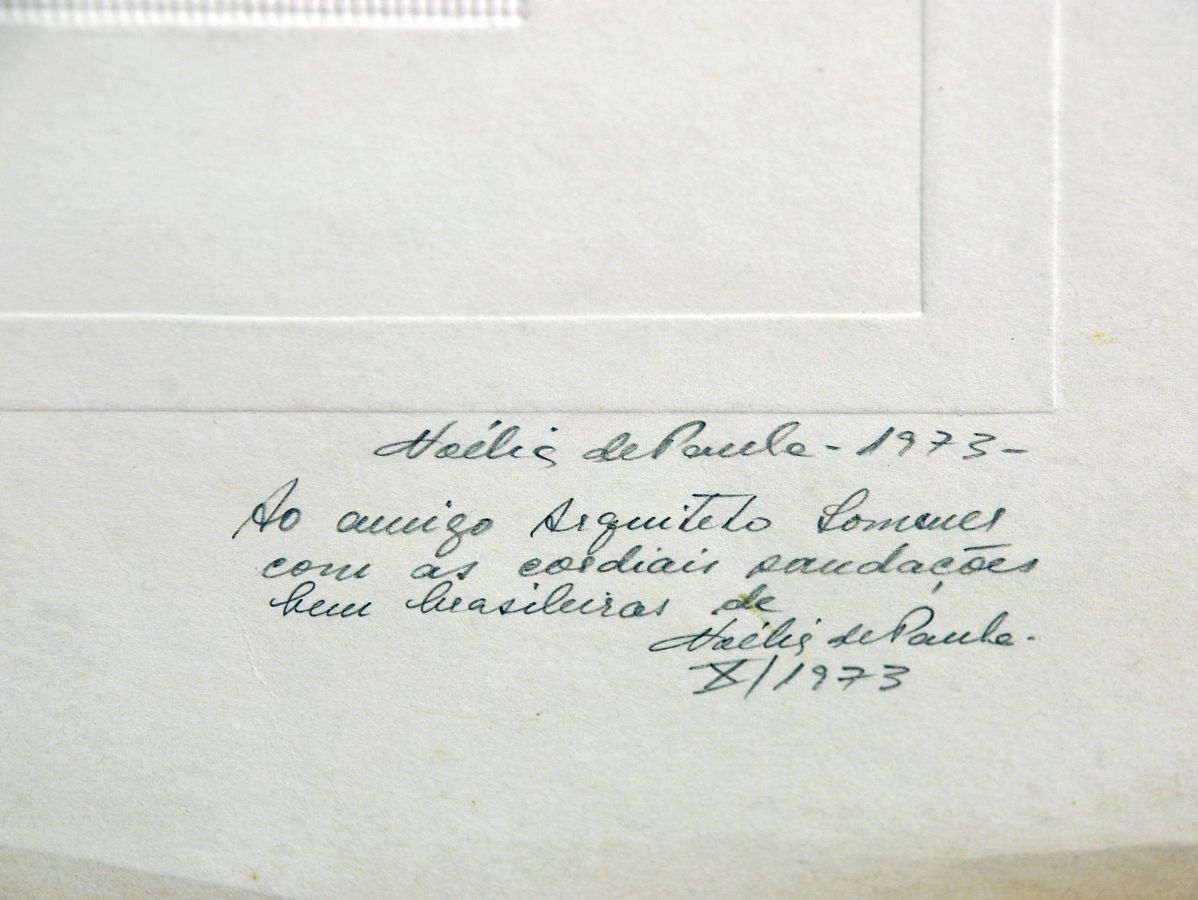 Noélia de Paula - 1973 -
Ao amigo Arquiteto
com as cordiais saudações
bem brasileiras de
Noélia de Paula.
X/1973